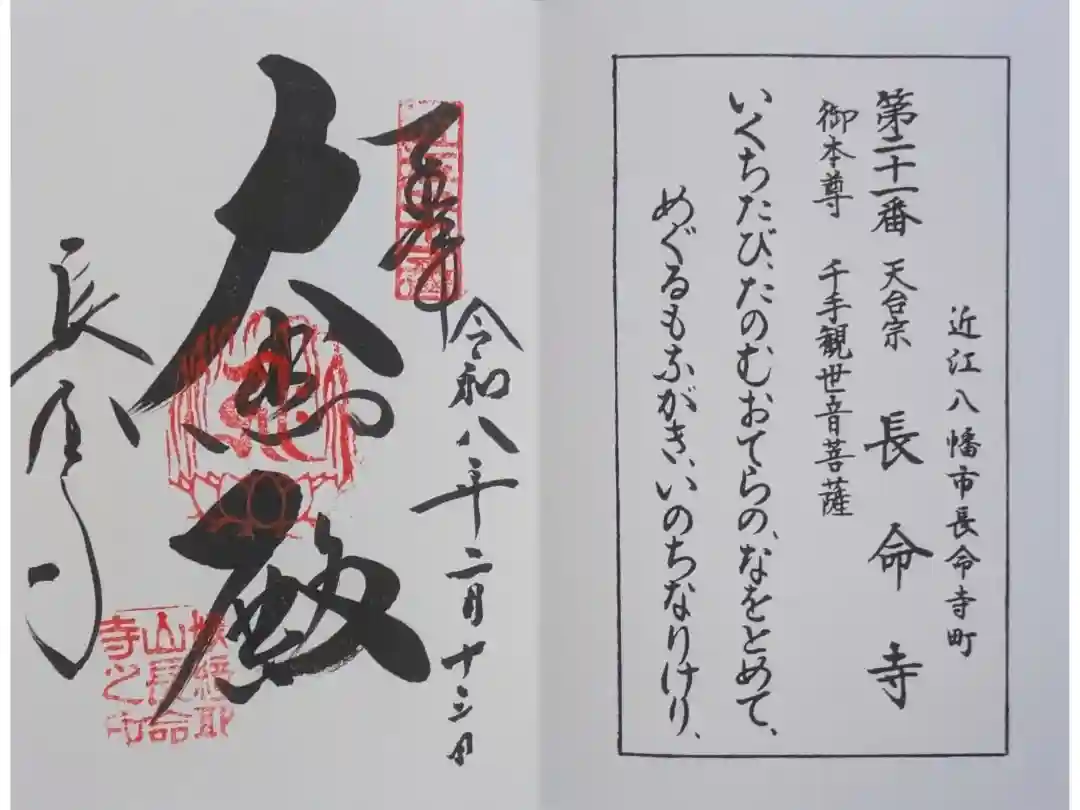 奉拝
令和八年二月十三日
大悲殿
長命寺
姨綺耶
山長命
寺之印
近江八幡市長命寺町
第二十一番 天台宗 長命寺
御本尊 千手観世音菩薩
いくちたび、たのむおてらの、なをとめて、
めぐるもながき、いのちなりけり、